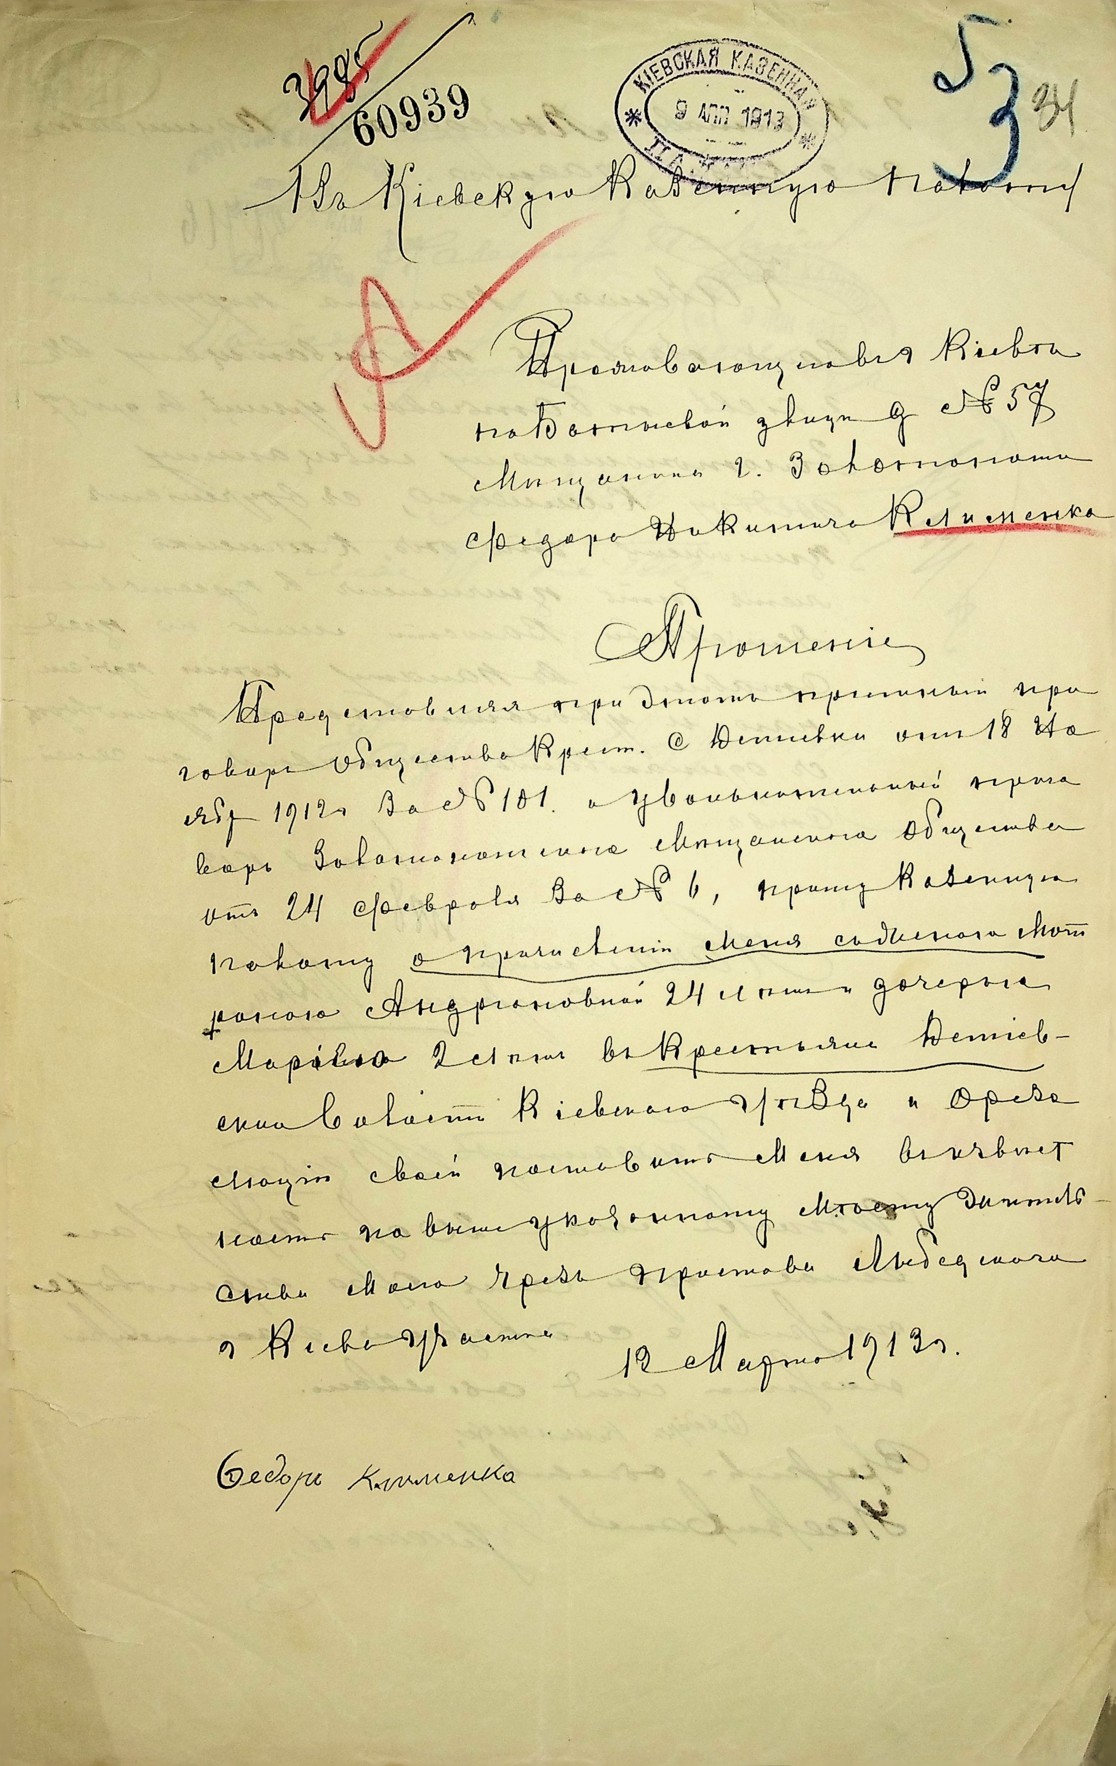 3985
60939
КІЕВСКАЯ КАЗЕННАЯ ПАЛАТА
9 АПР 1913
53 34
Въ Кіевскую Казенную Палату
Проживающаго въ г Кіевѣ
по улици д № 57
Мѣщанина г. Золотоноши
Федора Никитича Клименка
Прошеніе
Представляя при этомъ пріемный при
говоръ Общества Крест. с Демiевки отъ 18 Но
ябр 1912 г За № 101. и увольнительный приго
воръ Золотоношскаго Мѣщанскаго Общества
отъ 24 февраля За № 6, прошу Казенную
Полату о причисленіи меня сь женою Мот
роною Андреяновной 24 лѣтъ и дочерью
Марією 2 лѣтъ въ Крестьяне Деміев-
ской Волости Кіевского Уѣзда и О реза
люціи своей поставить меня въ извѣст
ность по выше указанному моему жытель
ства мого чрезъ пристава Лыбедского
г Киева участка
12 Марта 1913 г.
Федоръ Клименка